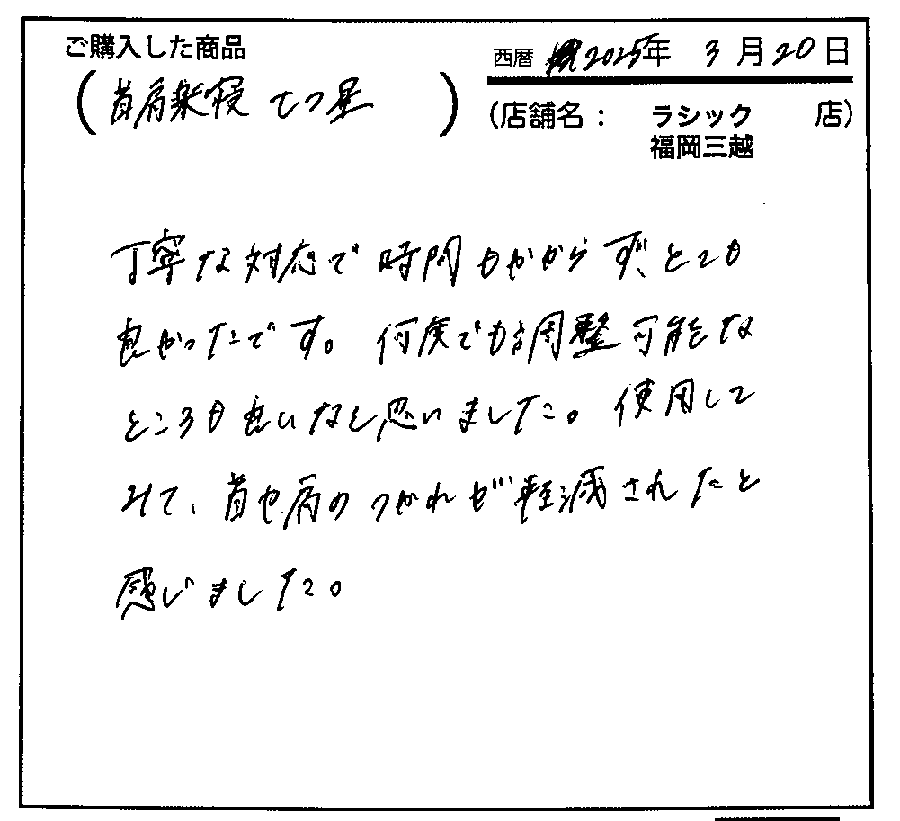 ご購入した商品
(首肩楽寝 七つ星)
西暦 2025年 3月20日
(店舗名: ラシック 福岡三越 店)
丁寧な対応で時間もかからず、とても
良かったです。何度でも調整可能な
ところも良いなと思いました。使用して
みて、首や肩のつかれが軽減されたと
感じました。